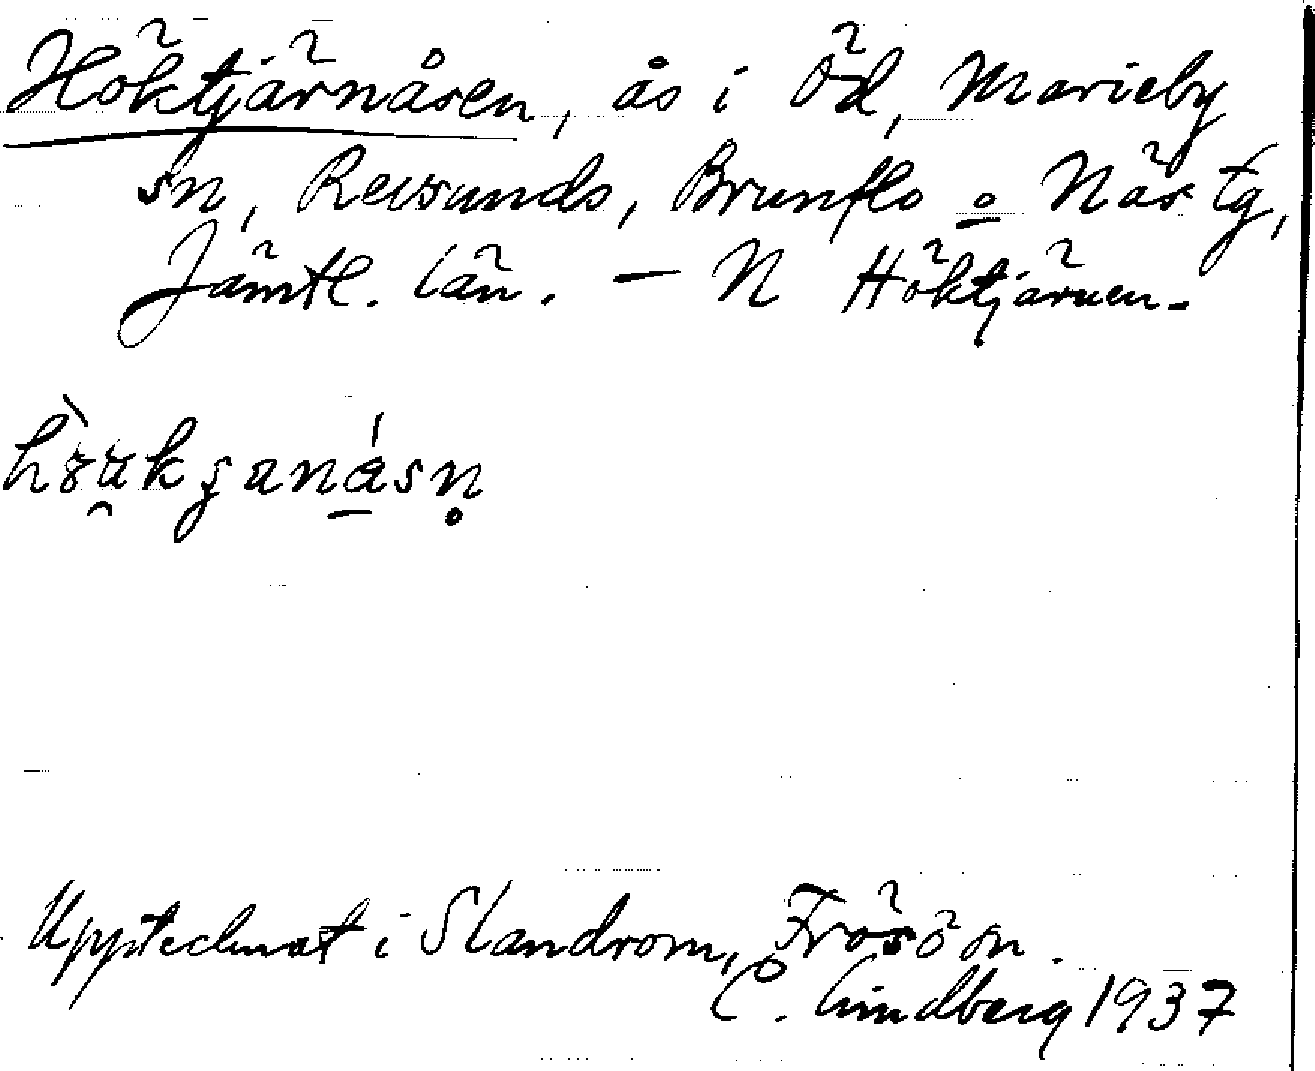 Höktjärnåsen, ås i Öd, Marieby
sn, Revsunds, Brunflo o Näs tg,
Jämtl. län. — N Höktjärnen.
Upptecknat i Slandrom, Frösö sn.
C. Lindberg 1937